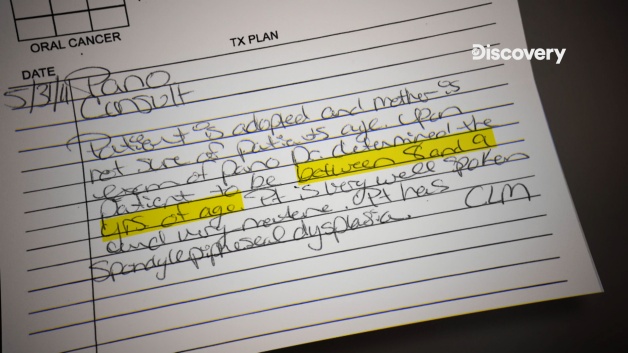 ORAL CANCER
TX PLAN
Discovery
DATE
5/31/11 Pano
Consult
Patient is adopted and mother is
not sure of patients age. Upon
exam of Pano Dr. determined the
patient to be between 8 and 9
yrs of age. Pt is very well spoken
and very mature. Pt has
Spondyloepipheseal dysplasia. CLM